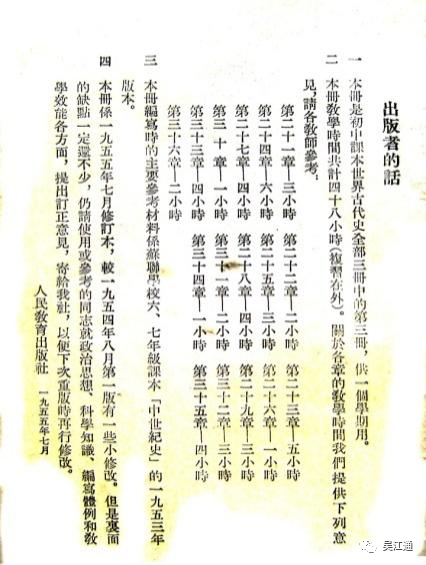 出版者的話
一 本冊是初中課本世界古代史全部三冊中的第三冊，供一個學期用。
二 本冊教學時間共計四十八小時（複習在外）。關於各章的教學時間我們提供下列意
見，請各教師參考。
第二十一章—三小時 第二十二章—二小時 第二十三章—五小時
第二十四章—六小時 第二十五章—三小時 第二十六章—一小時
第二十七章—四小時 第二十八章—四小時 第二十九章—三小時
第三十章—一小時 第三十一章—二小時 第三十二章—三小時
第三十三章—四小時 第三十四章—一小時 第三十五章—四小時
第三十六章—二小時
三 本冊編寫時的主要參考材料係蘇聯學校六、七年級課本「中世紀史」的一九五三年
版本。
四 本冊係一九五五年七月修訂本，較一九五四年八月第一版有一些小修改。但是裏面
的缺點一定還不少，仍請使用或參考的同志就政治思想、科學知識、編寫體例和教
學效能各方面，提出訂正意見，寄給我社，以便下次重版時再行修改。
人民教育出版社 一九五五年七月
吴江通